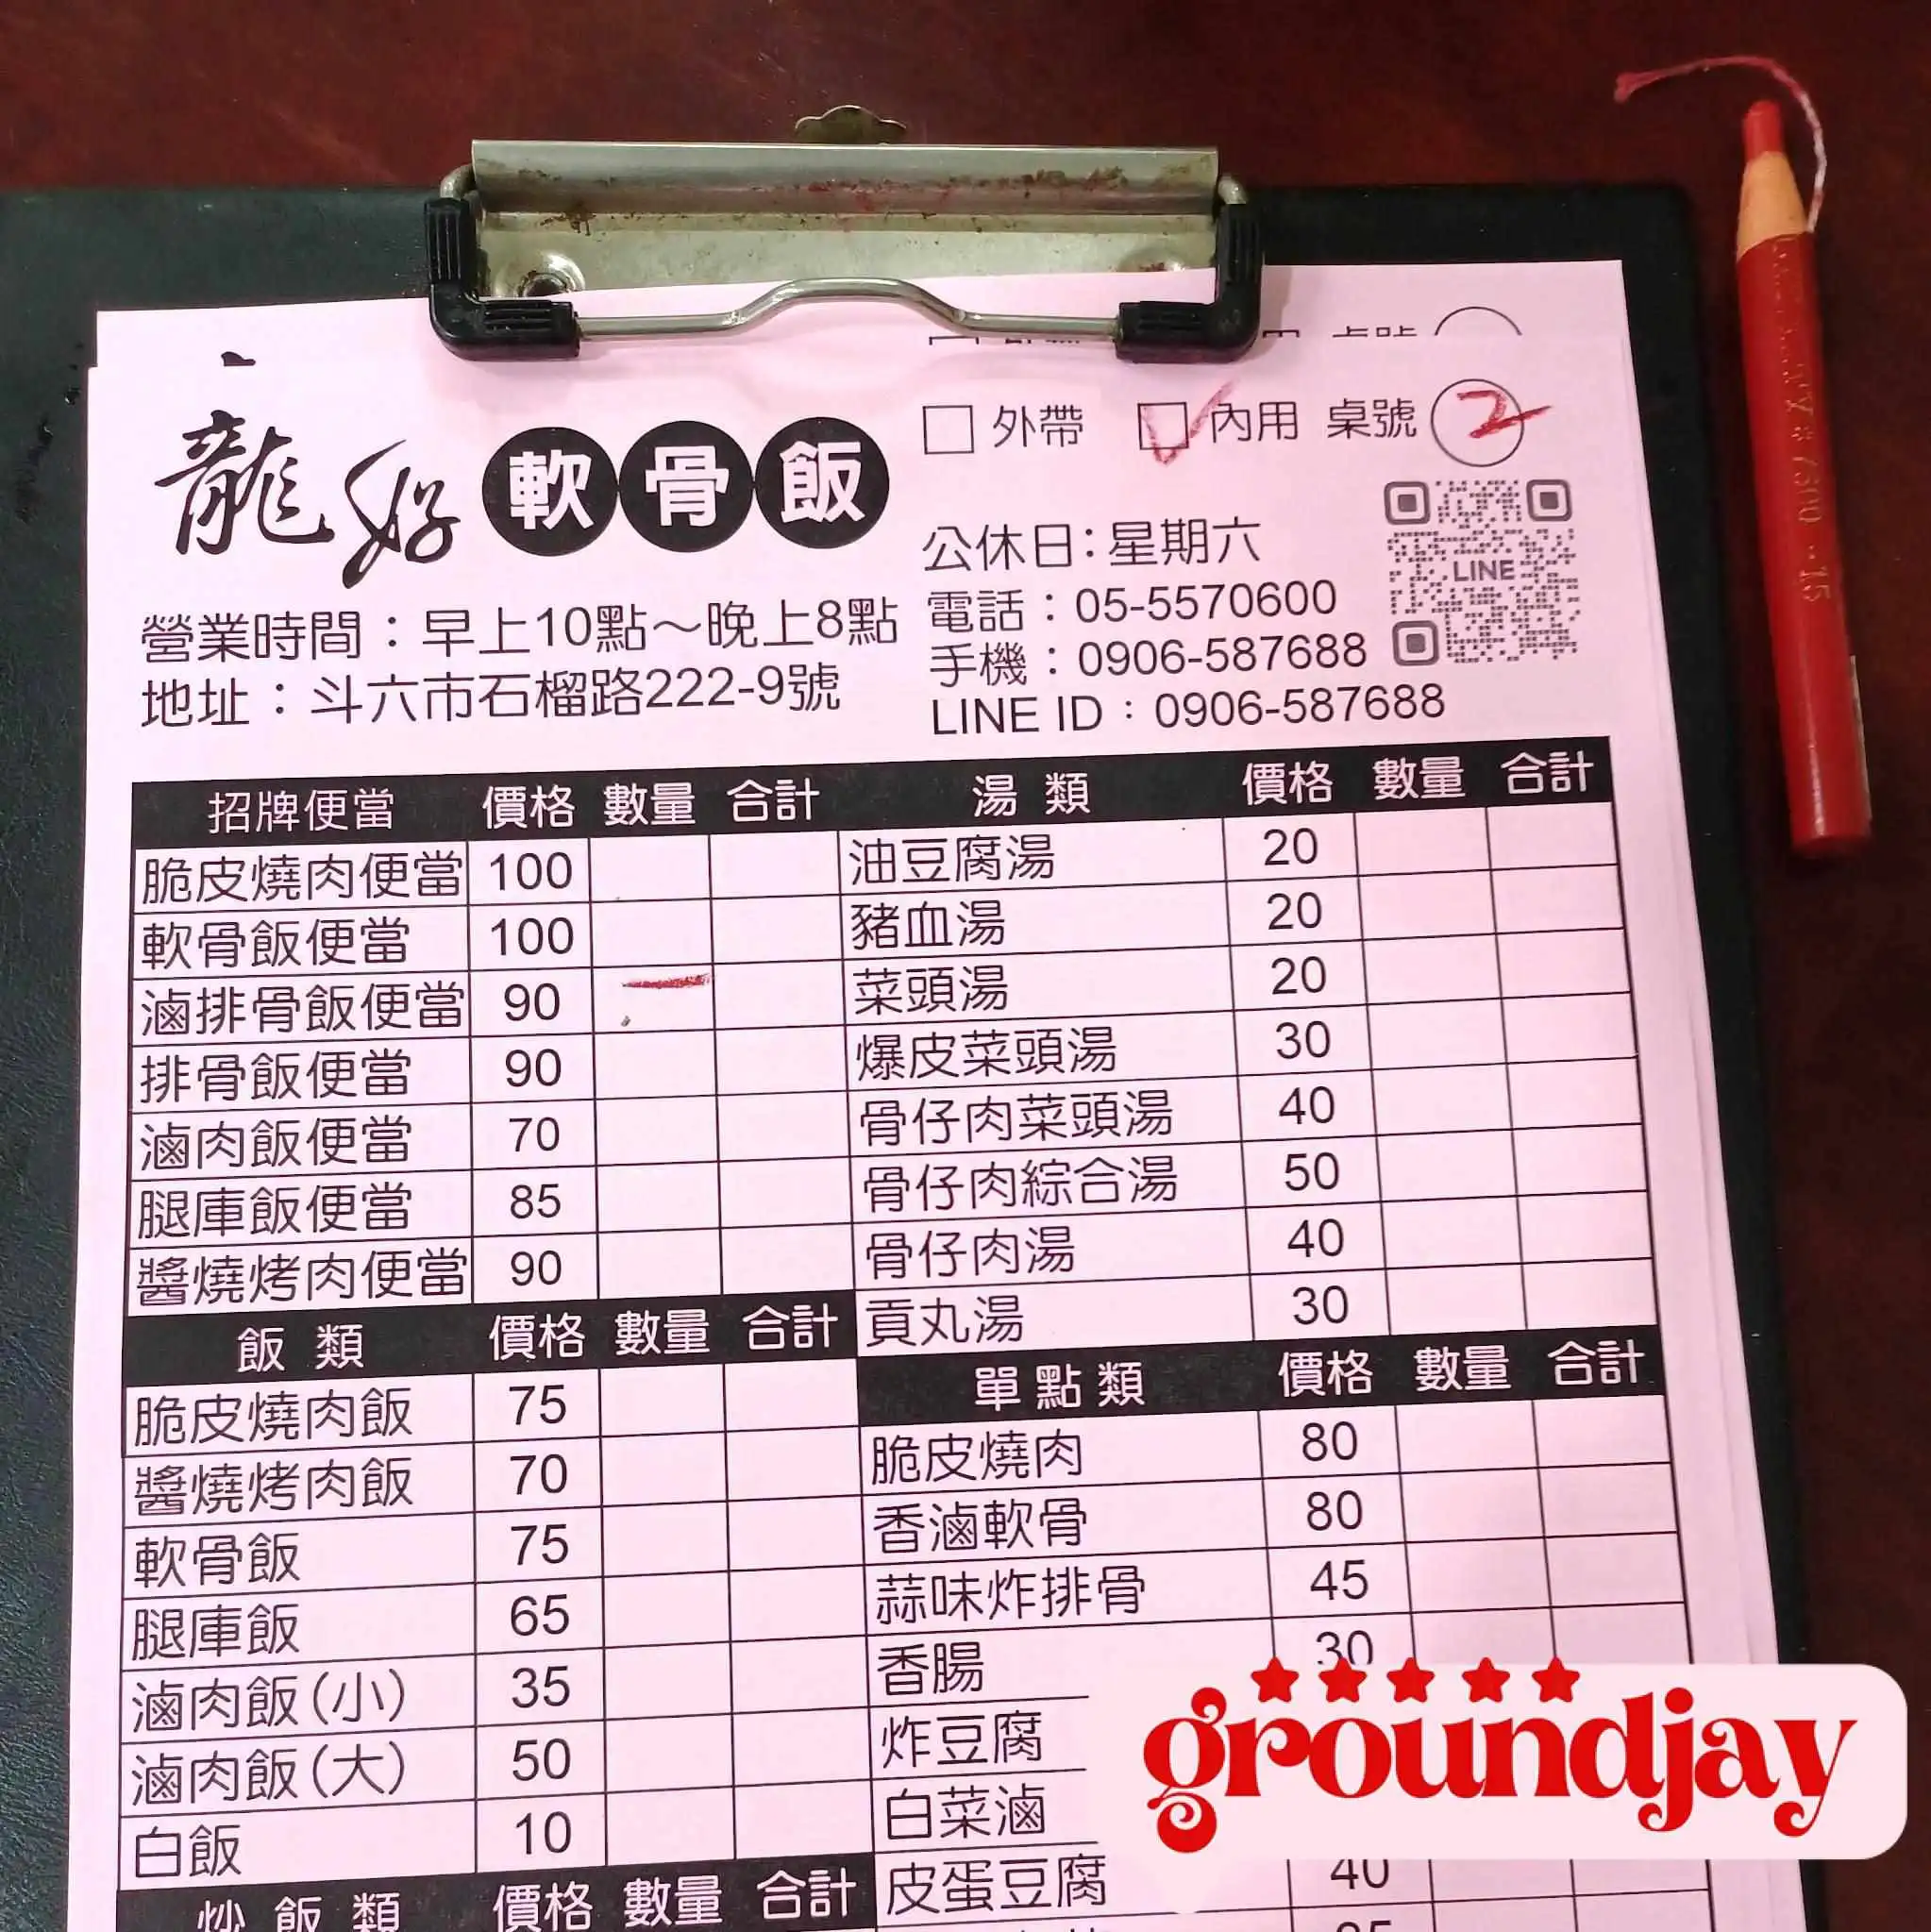 外帶 內用 桌號 2
龍好 軟骨飯
公休日:星期六
LINE
營業時間：早上10點～晚上8點
電話：05-5570600
手機：0906-587688
地址：斗六市石榴路222-9號
LINE ID：0906-587688
招牌便當 價格 數量 合計
脆皮燒肉便當 100
軟骨飯便當 100
滷排骨飯便當 90
排骨飯便當 90
滷肉飯便當 70
腿庫飯便當 85
醬燒烤肉便當 90
飯類 價格 數量 合計
脆皮燒肉飯 75
醬燒烤肉飯 70
軟骨飯 75
腿庫飯 65
滷肉飯(小) 35
滷肉飯(大) 50
白飯 10
炒飯類 價格 數量 合計
湯類 價格 數量 合計
油豆腐湯 20
豬血湯 20
菜頭湯 20
爆皮菜頭湯 30
骨仔肉菜頭湯 40
骨仔肉綜合湯 50
骨仔肉湯 40
貢丸湯 30
單點類 價格 數量 合計
脆皮燒肉 80
香滷軟骨 80
蒜味炸排骨 45
香腸 30
炸豆腐
白菜滷
皮蛋豆腐 40
groundjay